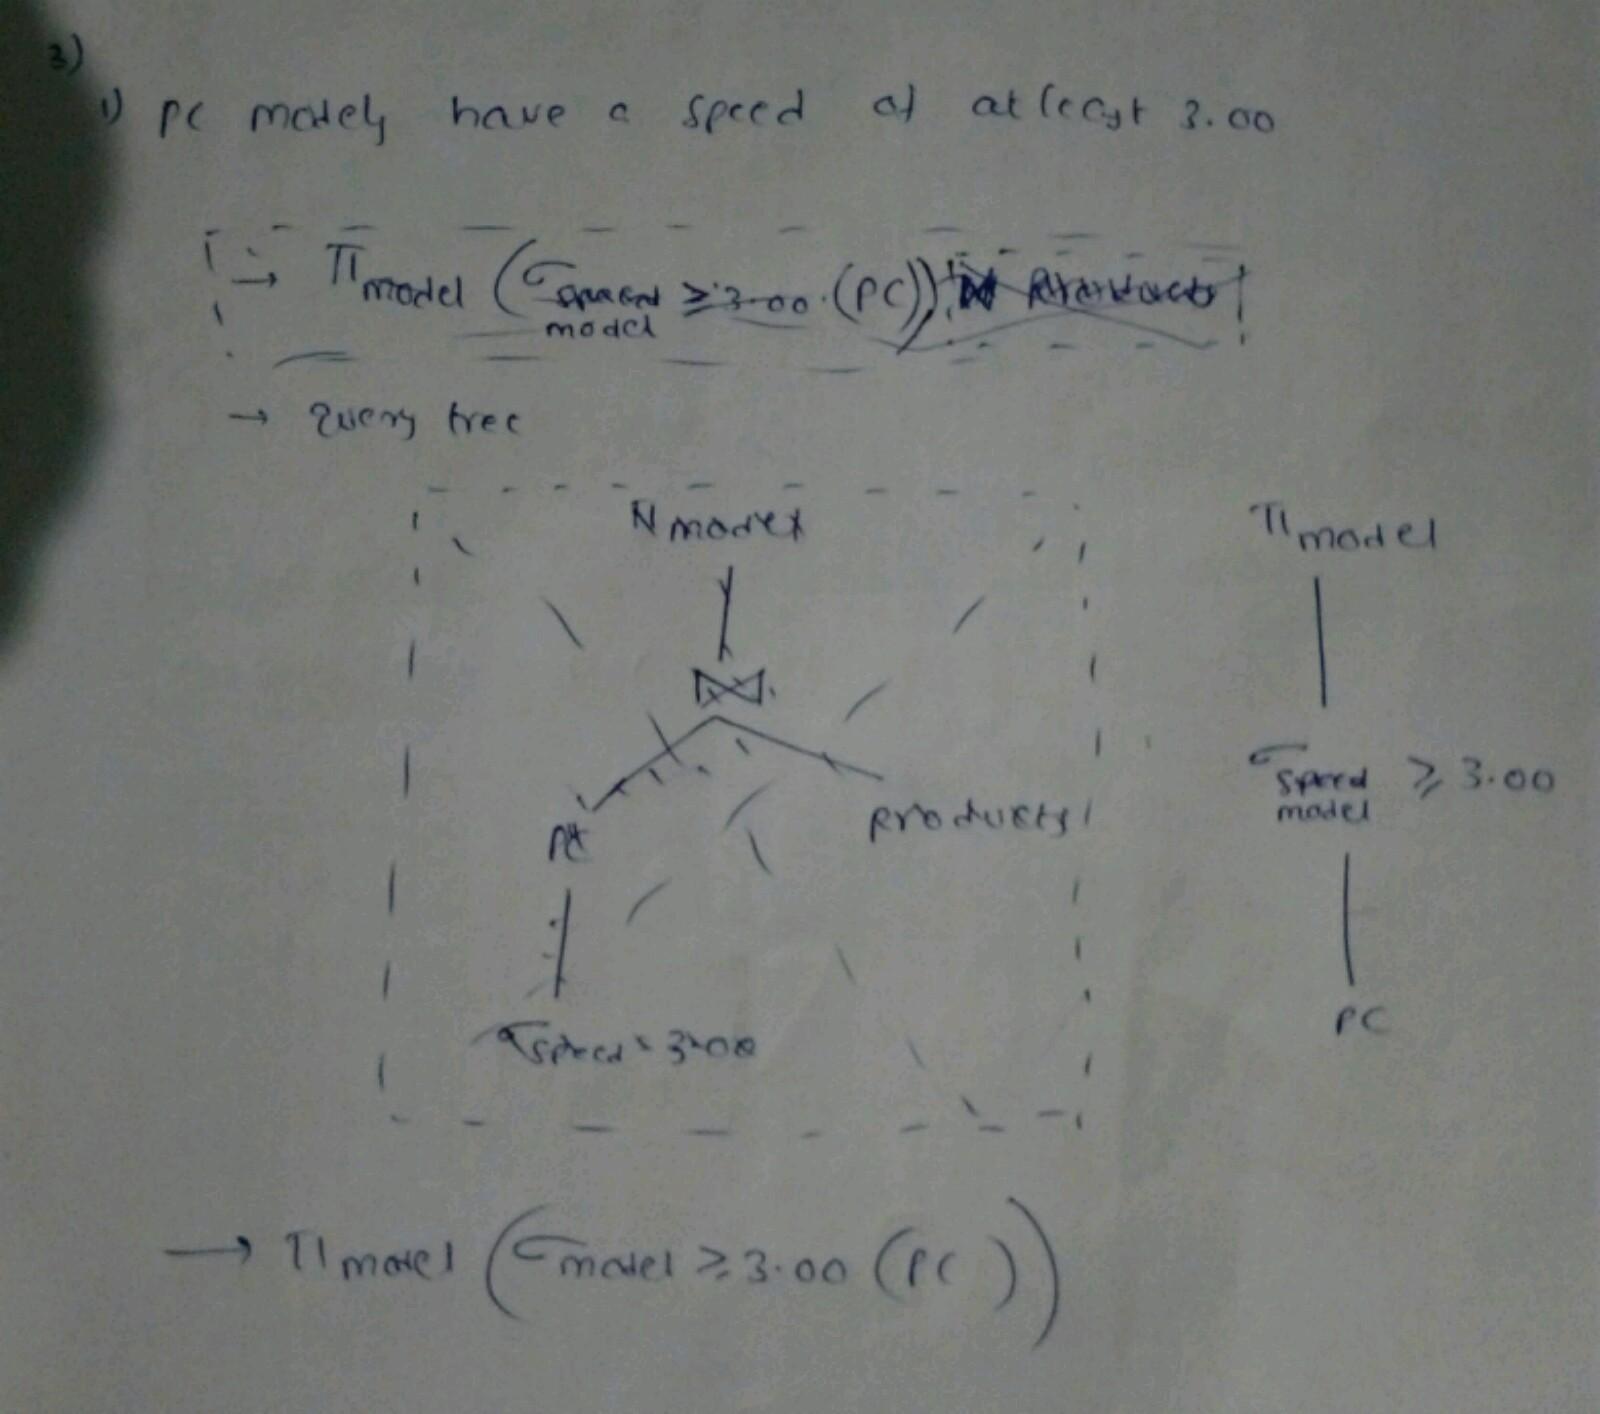 3)
1) PC models have a speed of at least 3.00
→ π model (σ speed model ≥ 3.00 (PC)) ⋈ Products
→ Query tree
π model
⋈
PC
Products
σ speed ≥ 3.00
π model
σ speed model ≥ 3.00
PC
→ π model (σ model ≥ 3.00 (PC))